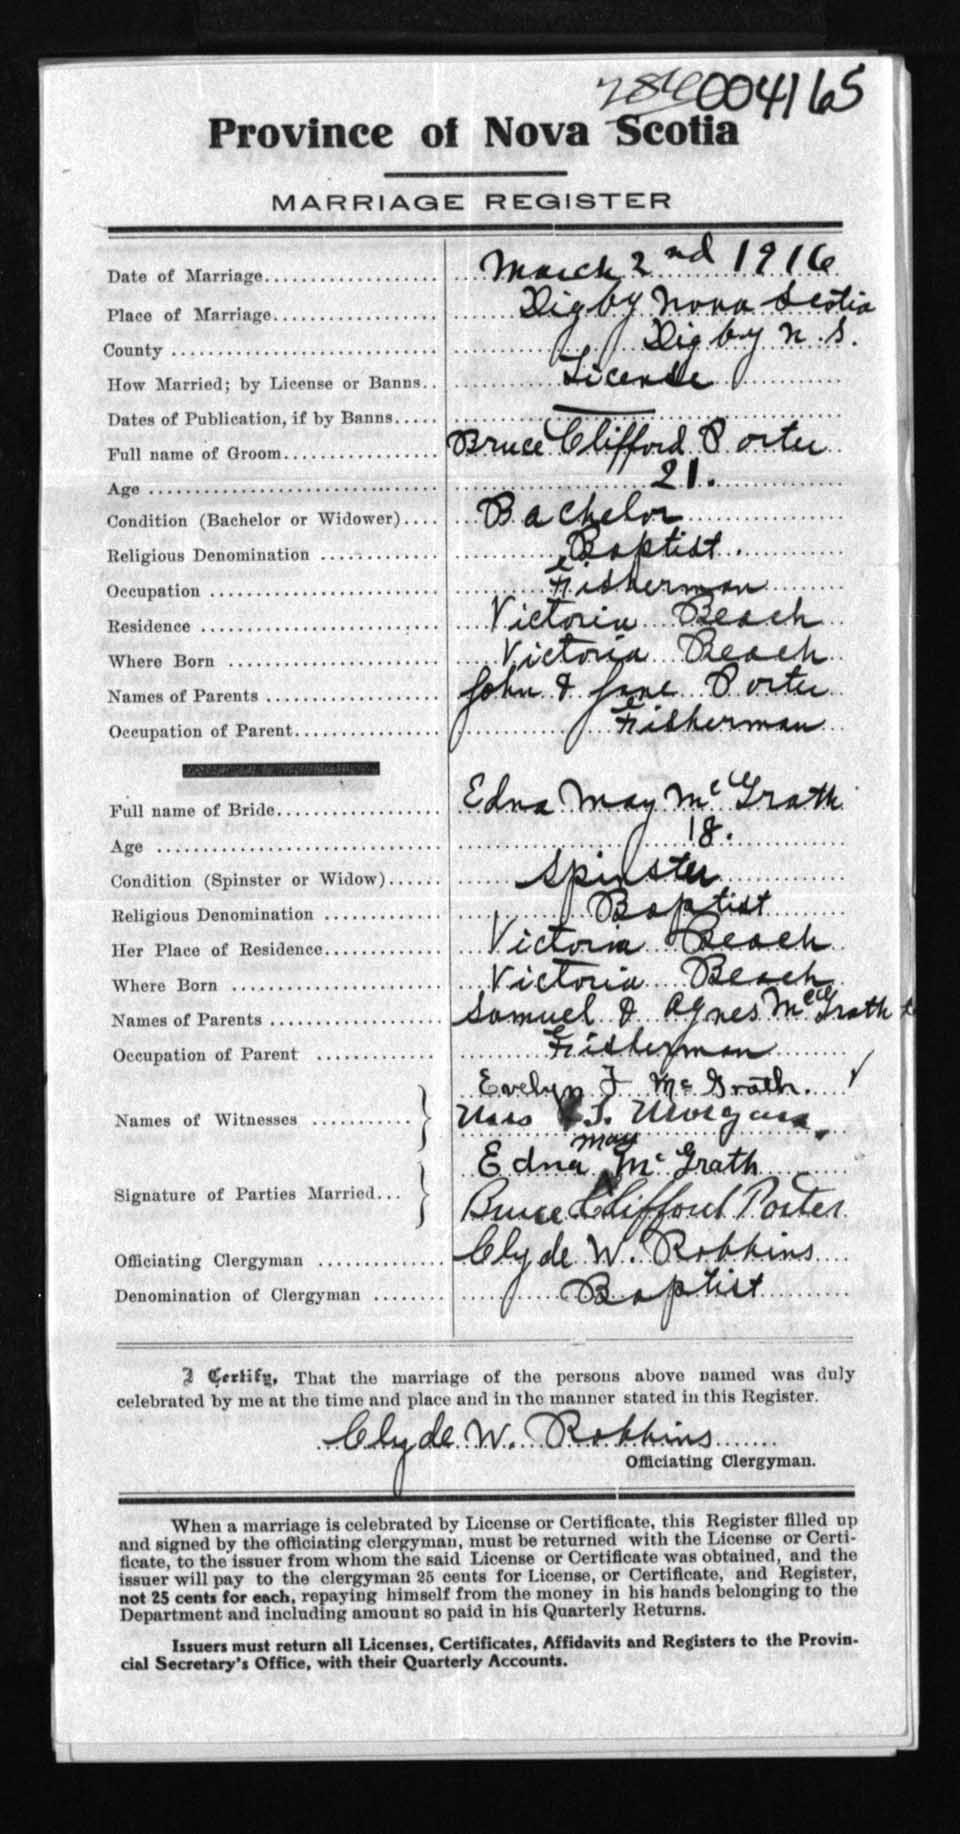 284 004165
Province of Nova Scotia
MARRIAGE REGISTER
Date of Marriage.................... March 2nd 1916
Place of Marriage................... Digby Nova Scotia
County ............................. Digby N.S.
How Married; by License or Banns.. License
Dates of Publication, if by Banns..... —
Full name of Groom.................. Bruce Clifford Porter
Age ................................ 21.
Condition (Bachelor or Widower).... Bachelor
Religious Denomination ............. Baptist.
Occupation ......................... Fisherman
Residence .......................... Victoria Beach
Where Born ......................... Victoria Beach
Names of Parents ................... John & Jane Porter
Occupation of Parent................ Fisherman
Full name of Bride.................. Edna May McGrath
Age ................................ 18.
Condition (Spinster or Widow)...... Spinster
Religious Denomination ............. Baptist
Her Place of Residence.............. Victoria Beach
Where Born ......................... Victoria Beach
Names of Parents ................... Samuel & Agnes McGrath
Occupation of Parent ............... Fisherman
Evelyn F McGrath.
Names of Witnesses ............ Morgan
May
Edna McGrath
Signature of Parties Married...
Bruce Clifford Porter
Officiating Clergyman .............. Clyde W. Robbins
Denomination of Clergyman ......... Baptist
I Certify, That the marriage of the persons above named was duly
celebrated by me at the time and place and in the manner stated in this Register.
Clyde W. Robbins
Officiating Clergyman.
When a marriage is celebrated by License or Certificate, this Register filled up
and signed by the officiating clergyman, must be returned with the License or Certi-
ficate, to the issuer from whom the said License or Certificate was obtained, and the
issuer will pay to the clergyman 25 cents for License, or Certificate, and Register,
not 25 cents for each, repaying himself from the money in his hands belonging to the
Department and including amount so paid in his Quarterly Returns.
Issuers must return all Licenses, Certificates, Affidavits and Registers to the Provin-
cial Secretary's Office, with their Quarterly Accounts.